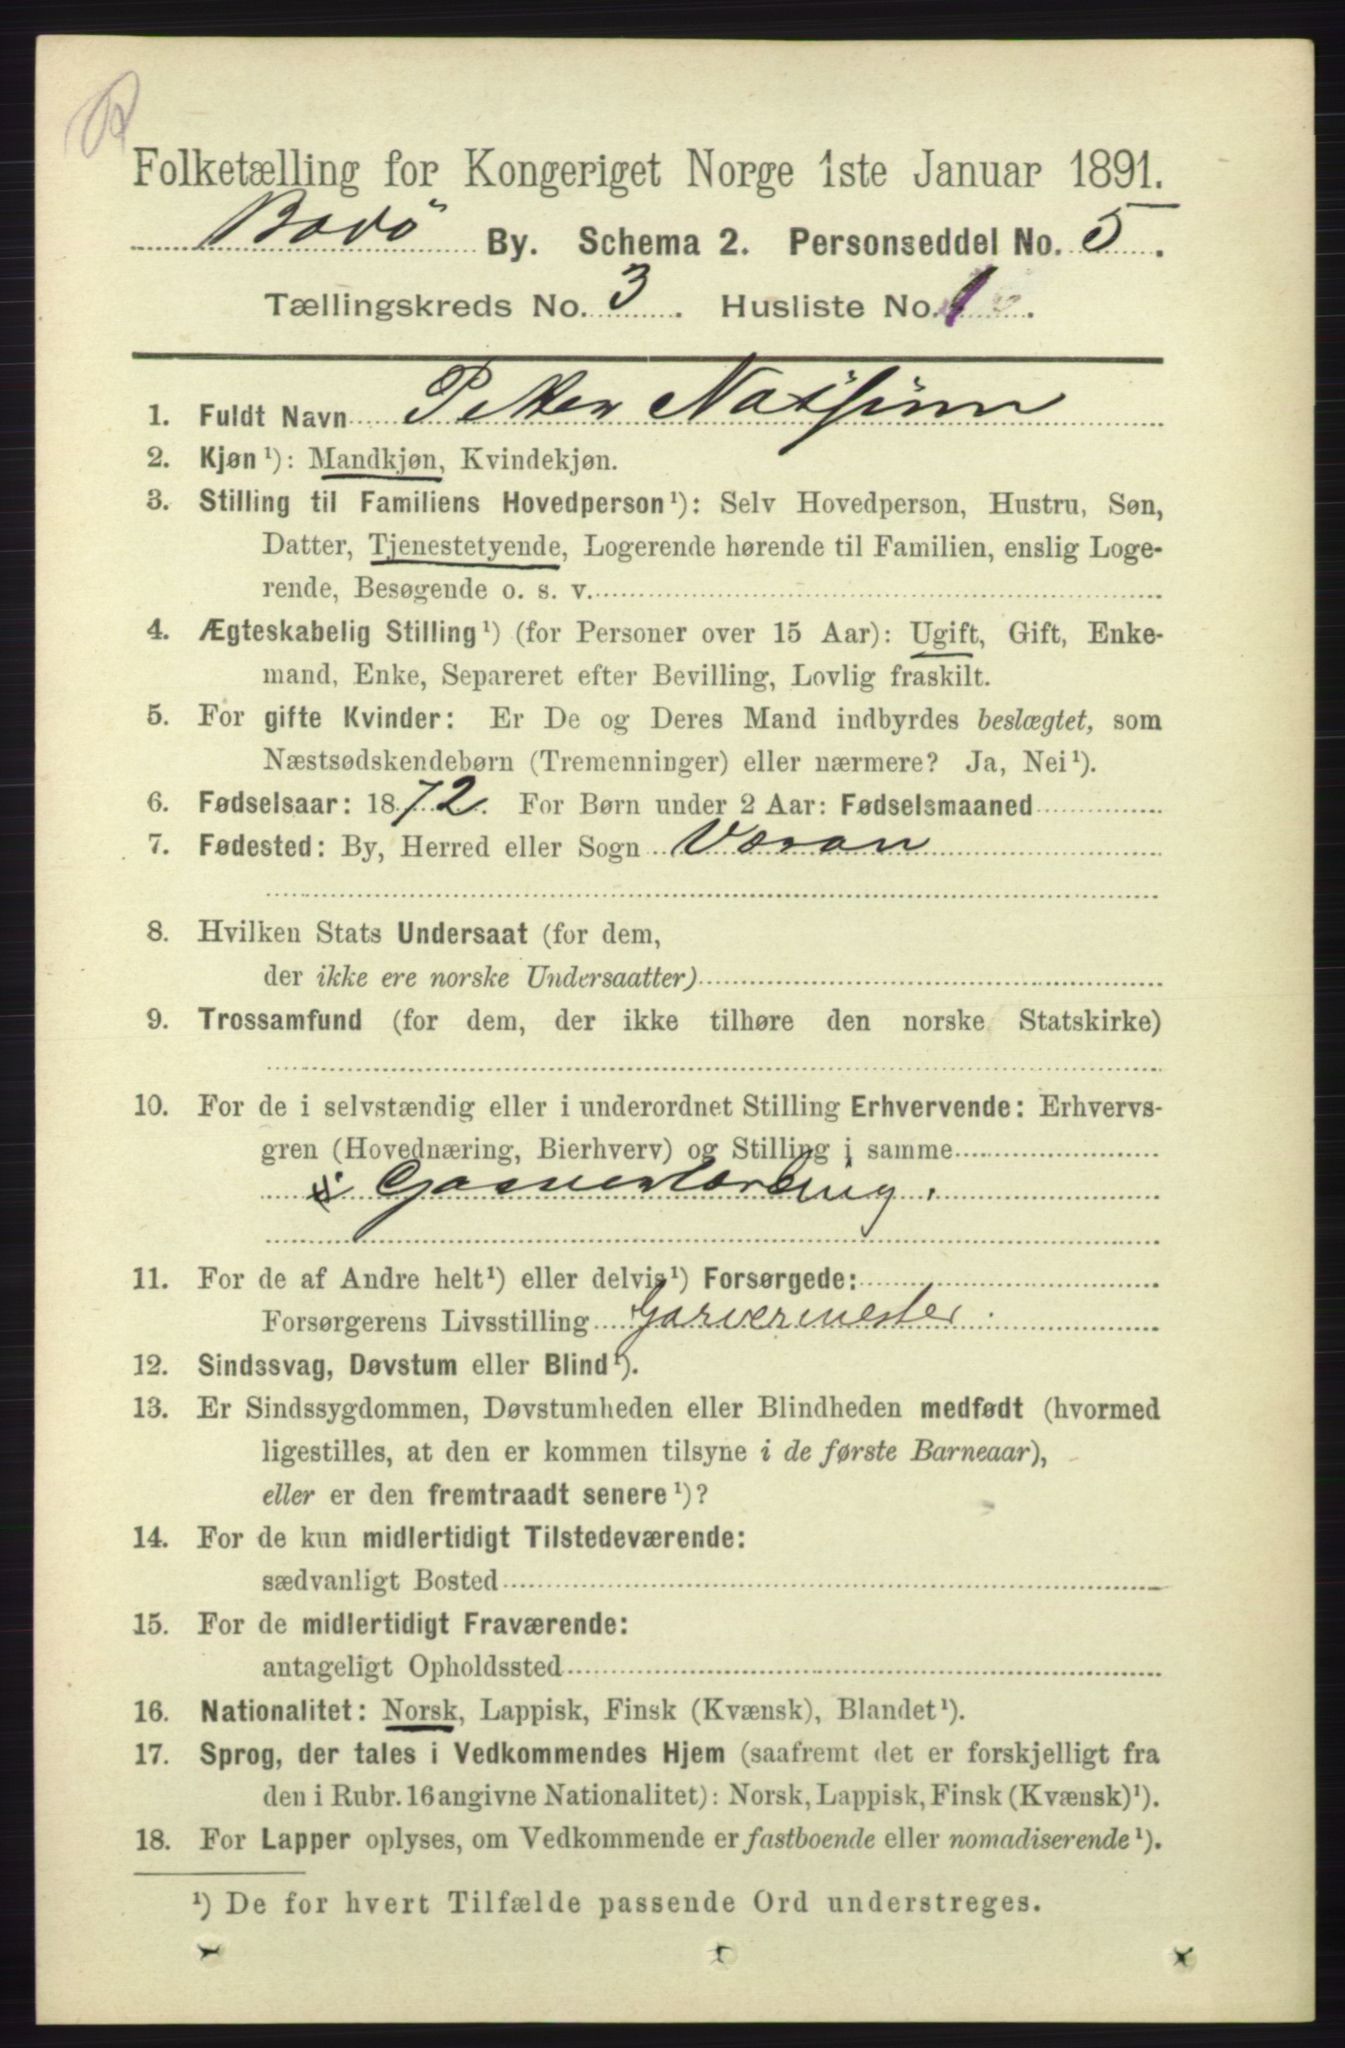 Folketælling for Kongeriget Norge 1ste Januar 1891.
Bodö By. Schema 2. Personseddel No. 5.
Tællingskreds No. 3. Husliste No. 1.
1. Fuldt Navn Petter
2. Kjøn¹): Mandkjøn, Kvindekjøn.
3. Stilling til Familiens Hovedperson¹): Selv Hovedperson, Hustru, Søn,
Datter, Tjenestetyende, Logerende hørende til Familien, enslig Loge-
rende, Besøgende o. s. v.
4. Ægteskabelig Stilling¹) (for Personer over 15 Aar): Ugift, Gift, Enke-
mand, Enke, Separeret efter Bevilling, Lovlig fraskilt.
5. For gifte Kvinder: Er De og Deres Mand indbyrdes beslægtet, som
Næstsødskendebørn (Tremenninger) eller nærmere? Ja, Nei¹).
6. Fødselsaar: 1872. For Børn under 2 Aar: Fødselsmaaned
7. Fødested: By, Herred eller Sogn
8. Hvilken Stats Undersaat (for dem,
der ikke ere norske Undersaatter)
9. Trossamfund (for dem, der ikke tilhøre den norske Statskirke)
10. For de i selvstændig eller i underordnet Stilling Erhvervende: Erhvervs-
gren (Hovednæring, Bierhverv) og Stilling i samme
11. For de af Andre helt¹) eller delvis¹) Forsørgede:
Forsørgerens Livsstilling Garvermester.
12. Sindssvag, Døvstum eller Blind¹).
13. Er Sindssygdommen, Døvstumheden eller Blindheden medfødt (hvormed
ligestilles, at den er kommen tilsyne i de første Barneaar),
eller er den fremtraadt senere¹)?
14. For de kun midlertidigt Tilstedeværende:
sædvanligt Bosted
15. For de midlertidigt Fraværende:
antageligt Opholdssted
16. Nationalitet: Norsk, Lappisk, Finsk (Kvænsk), Blandet¹).
17. Sprog, der tales i Vedkommendes Hjem (saafremt det er forskjelligt fra
den i Rubr. 16 angivne Nationalitet): Norsk, Lappisk, Finsk (Kvænsk)¹).
18. For Lapper oplyses, om Vedkommende er fastboende eller nomadiserende¹).
¹) De for hvert Tilfælde passende Ord understreges.